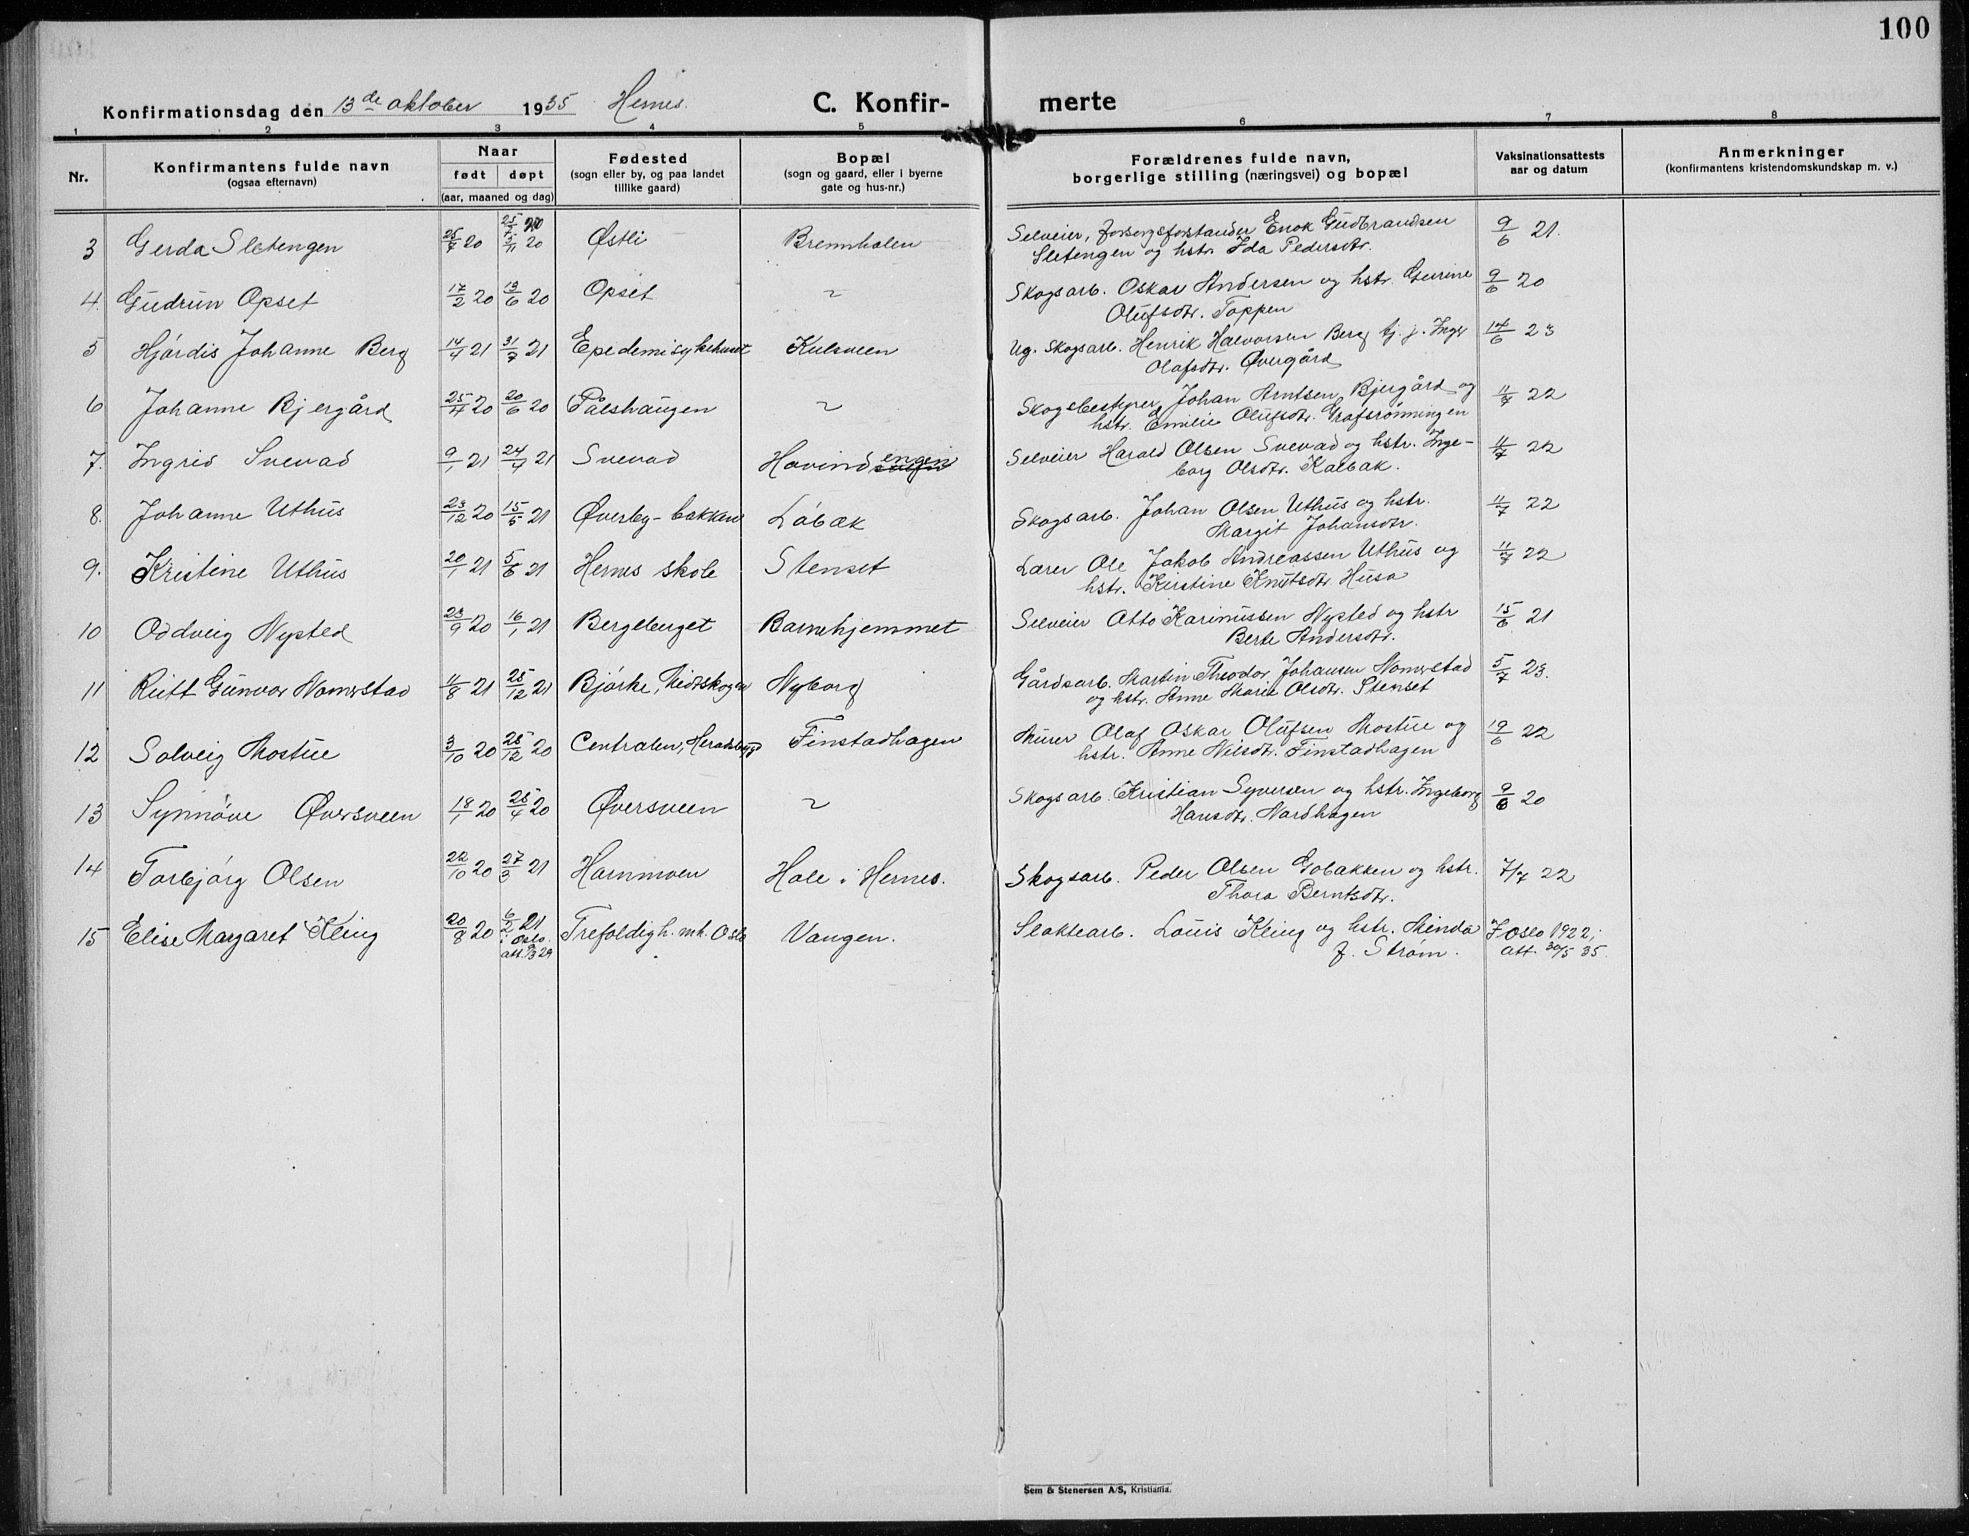 100
Konfirmationsdag den 13de oktober 1935 Hernes.
C. Konfir- merte
1 2 3 4 5 6 7 8
Nr.
Konfirmantens fulde navn
(ogsaa efternavn)
Naar
født døpt
(aar, maaned og dag)
Fødested
(sogn eller by, og paa landet
tillike gaard)
Bopæl
(sogn og gaard, eller i byerne
gate og hus-nr.)
Forældrenes fulde navn,
borgerlige stilling (næringsvei) og bopæl
Vaksinationsattests
aar og datum
Anmerkninger
(konfirmantens kristendomskundskap m. v.)
3 Gerda Sletengen 25/7 20 /11 20 Østli Brennhalen Selveier, forsorgsforstander Enok Gudbrandsen 9/6 21.
Sletengen og hstr. Ida Pedersdtr.
4. Gudrun Opset 17/2 20 13/6 20 Opset ~ Skogsarb. Oskar Andersen og hstr. Gurine 9/6 20
Olufsdtr. Toppen
5 Hjördis Johanne Berg 14/4 21 31/7 21 Epedemisykehuset Kulsveen Ug. Skogsarb. Henrik Halvorsen Berg tj. j. Inger 14/6 23
Olafsdtr. Øvergård
6 Johanne Bjergård 25/4 20 20/6 20 Pålshaugen ~ Skogsbestyrer Johan Arntsen Bjergård og 11/7 22
hstr. Emelie Olufsdtr. Grafsrønningen
7. Ingrid Svevad 9/1 21 24/4 21 Svevad Hovindengen Selveier Harald Olsen Svevad og hstr. Inge- 11/7 22
borg Olsdtr. Kalbak.
8. Johanne Uthus 23/12 20 15/5 21 Øverby-bakken Løbæk Skogsarb. Johan Olsen Uthus og hstr. 11/7 22
Margit Johansdtr.
9. Kristine Uthus 20/1 21 5/6 21 Hernes skole Stenset Lærer Ole Jakob Andreassen Uthus og 11/7 22
hstr. Kirstine Knutsdtr. Husa
10 Oddveig Nysted 23/9 20 16/1 21 Bergeberget Barnehjemmet Selveier Otto Karinussen Nysted og hstr 15/6 21
Berte Andersdtr.
11 Rutt Gunvor Nomerstad 11/8 21 25/12 21 Björke, Midtskogen Nyborg Gårdsarb. Martin Theodor Johansen Nomerstad 5/7 23.
og hstr. Anne Marie Olsdtr. Stenset
12 Solveig Mostue 3/10 20 25/12 20 Centralen, Heradsbygd Finstadhagen Murer Olaf Oskar Olufsen Mostue og 19/6 22
hstr. Anne Nilsdtr. Finstadhagen
13 Synnøve Øversveen 18/1 20 25/4 20 Øversveen ~ Skogsarb. Kristian Syversen og hstr. Ingeborg 9/6 20
Hansdtr. Nordhagen
14 Torbjørg Olsen 22/10 20 27/3 21 Hammoen Hole i Hernes. Skogsarb. Peder Olsen Gobakken og hstr. 7/7 22
Thora Berntsdtr.
15 Elise Margaret Kling 20/8 20 6/2 21 Trefoldigh. mh. Oslo Vangen. Slakterarb. Louis Kling og hstr. Minda I Oslo 1922;
i Oslo. f. Strøm. att. 30/5 35.
att.
Sem & Stenersen A/S, Kristiania.